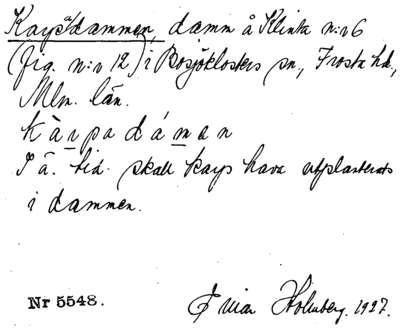 Karpadammen, damm å Klinta n:r 6
(fig. n:r 12) i Bosjöklosters sn, Frosta hd.,
Mlm. län.
kàrpadáman
I ä. tid. skall karp hava utplanterats
i dammen.
Nr 5548.
Holmberg. 1927.